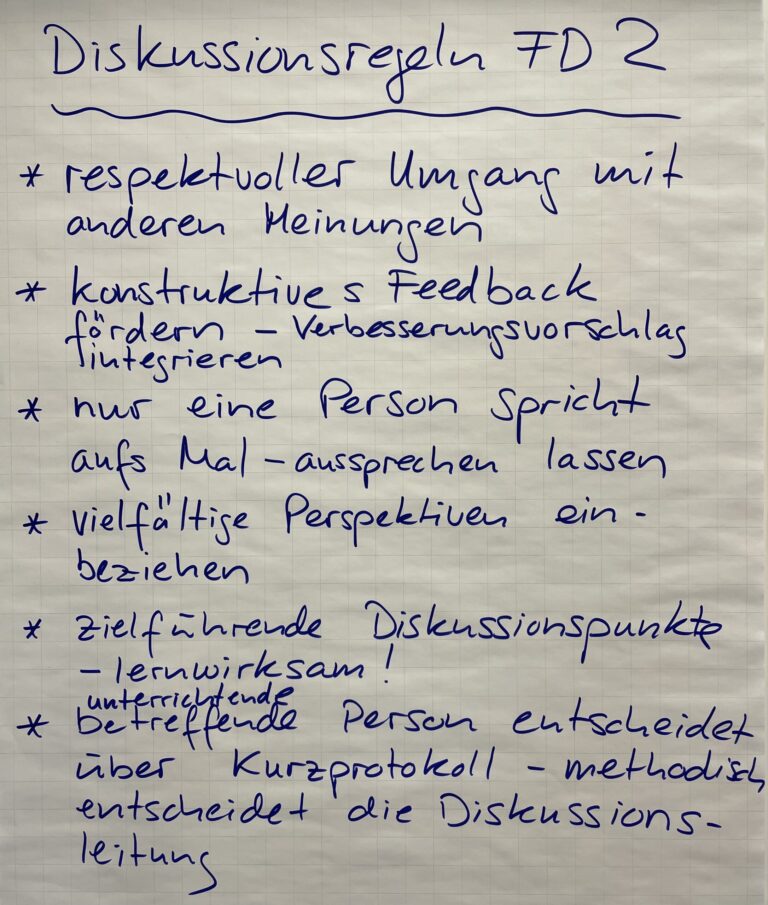 Diskussionsregeln FD 2
* respektvoller Umgang mit
anderen Meinungen
* konstruktives Feedback
fördern – Verbesserungsvorschlag
integrieren
* nur eine Person spricht
aufs Mal – aussprechen lassen
* vielfältige Perspektiven ein-
beziehen
* zielführende Diskussionspunkte
– lernwirksam!
unterrichtende
* betreffende Person entscheidet
über Kurzprotokoll – methodisch
entscheidet die Diskussions-
leitung